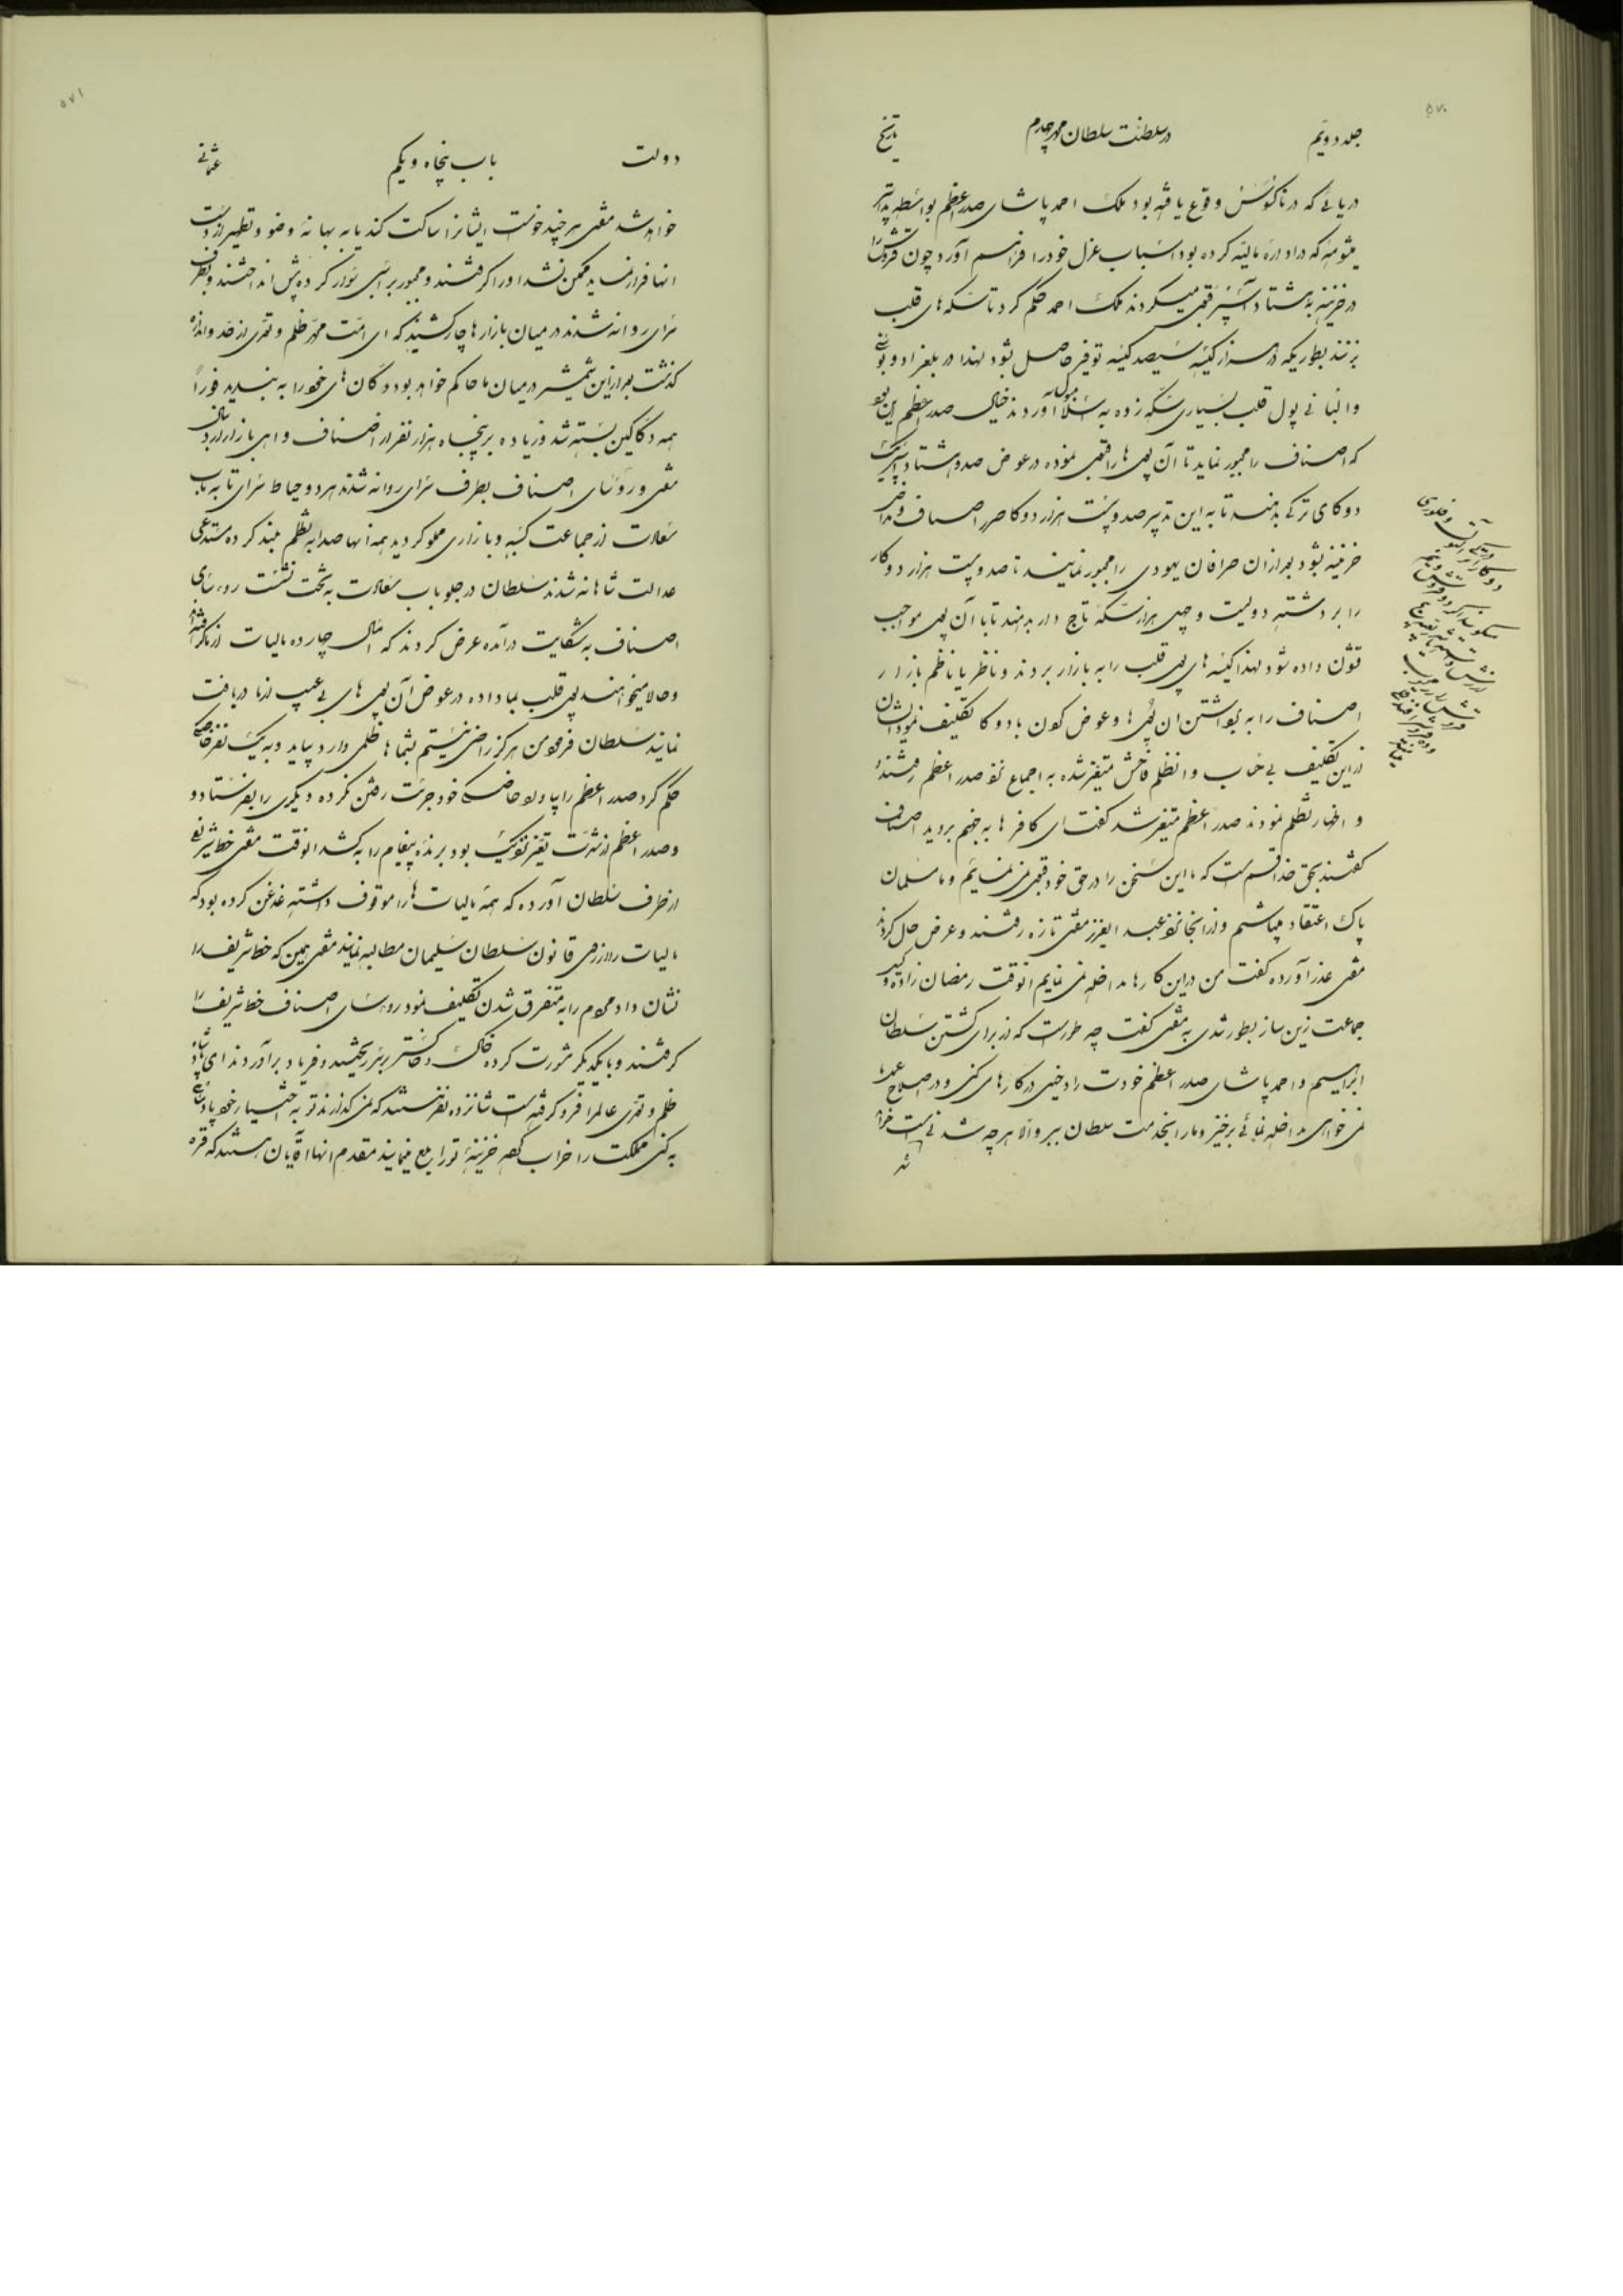 ۵۷۰
جلد دویم در سلطنت سلطان محمد چهارم تاریخ
دریائی که در ناکوس وقوع یافته بود ملک احمد پاشای صدر اعظم بواسطه تدابیر
میشومه که در اداره مالیه کرده بود اسباب عزل خود را فراهم آورد چون قروش را
در خزینه به هشتاد آسپر قبول میکردند ملک احمد حکم کرد تا سکه های قلب
بزنند بطوریکه در هزار کیسه سیصد کیسه توفیر حاصل شود لهذا در بلغراد و بوسنه
والبانی پول قلب بسیاری سکه زده به اسلامبول آوردند خیال صدر اعظم این بود
که اصناف را مجبور نماید تا آن پول ها را قبول نموده در عوض صد و هشتاد آسپر یک
دوکای ترکی بدهند تا به این تدبیر صد و بیست هزار دوکا ضرر اصناف و مداخل
خزینه بشود بعد از آن صرافان یهودی را مجبور نمایند تا صد و بیست هزار دوکا
را برداشته دویست و چهل هزار سکه تاج دار بدهند تا با آن پول مواجب
قشون داده شود لهذا کیسه های پول قلب را به بازار بردند و ناظر یا ناظم بازار
اصناف را به برداشتن آن پول ها و عوض کردن با دوکا تکلیف نمود ایشان
از این تکلیف بی حساب و از ظلم فاحش متغیر شده به اجماع نزد صدر اعظم رفتند
و اظهار تظلم نمودند صدر اعظم متغیر شد گفت ای کافر ها به جهنم بروید اصناف
گفتند بحق خدا قسم است که ما این سخن را در حق خود قبول نمی نمائیم و ما مسلمان
پاک اعتقاد میباشیم و از آنجا نزد عبد العزیز مفتی تازه رفتند و عرض حال کردند
مفتی عذر آورده گفت من در این کارها مداخله نمی نمایم آنوقت رمضان زاده وکیل
جماعت زین ساز بطور تندی به مفتی گفت چه طور است که از برای کشتن سلطان
ابراهیم و احمد پاشای صدر اعظم خودت را دخیل در کارهای کنی و در اصلاح عمل ما
نمی خواهی مداخله نمائی برخیز و ما را به خدمت سلطان ببر والا هر چه شدنی است خواهد
شد
۵۷۱
دولت باب پنجاه و یکم عثمانی
خواهد شد مفتی هر چند خواست ایشانرا ساکت کند یا به بهانهٔ وضو و تطهیر از دست
آنها فرار نماید ممکن نشد او را گرفتند و مجبور بر اسبی سوار کرده پیش انداختند و بطرف
سرای روانه شدند در میان بازارها جار کشیدند که ای امت محمد ظلم و تعدی از حد و اندازه
گذشت بعد از این شمشیر در میان ما حاکم خواهد بود دوکان های خود را به بندید فوراً
همه دکاکین بسته شد و زیاده بر پنجاه هزار نفر از اصناف و اهل بازار از دنبال
مفتی و روسای اصناف بطرف سرای روانه شدند هر دو حیاط سرای تا به باب
سعادت از جماعت کسبه و بازاری مملو گردید همه آنها صدا به تظلم بلند کرده مستدعی
عدالت شاهانه شدند سلطان در جلو باب سعادت به تخت نشست روسای
اصناف به شکایت درآمده عرض کردند که امسال چهارده مالیات از ما گرفته اند
و حالا میخواهند پول قلب بما داده در عوض آن پول های بی عیب از ما دریافت
نمایند سلطان فرمود من هرگز راضی نیستم بشما ها ظلمی وارد بیاید و به یک نفر خاصکی
حکم کرد صدر اعظم را بیاورد خاصکی خود جرئت رفتن نکرده دیگری را بفرستاد و
و صدر اعظم از شدت تغیر نزدیک بود برندهٔ پیغام را بکشد آنوقت مفتی خط شریفی
از طرف سلطان آورده که همه مالیات ها را موقوف داشته غدغن کرده بود که
مالیات را از روی قانون سلطان سلیمان مطالبه نمایند مفتی همین که خط شریف را
نشان داد مردم را به متفرق شدن تکلیف نمود روسای اصناف خط شریف را
گرفتند و با یکدیگر مشورت کرده خاک و خاکستر بر سر ریختند و فریاد برآوردند ای پادشاه
ظلم و تعدی عالم را فرو گرفته است شانزده نفر هستند که نمی گذارند تو به اختیار خود پادشاهی
بکنی مملکت را خراب کرده خزینهٔ تو را بلع مینمایند مقدم آنها آقایان هستند که قره